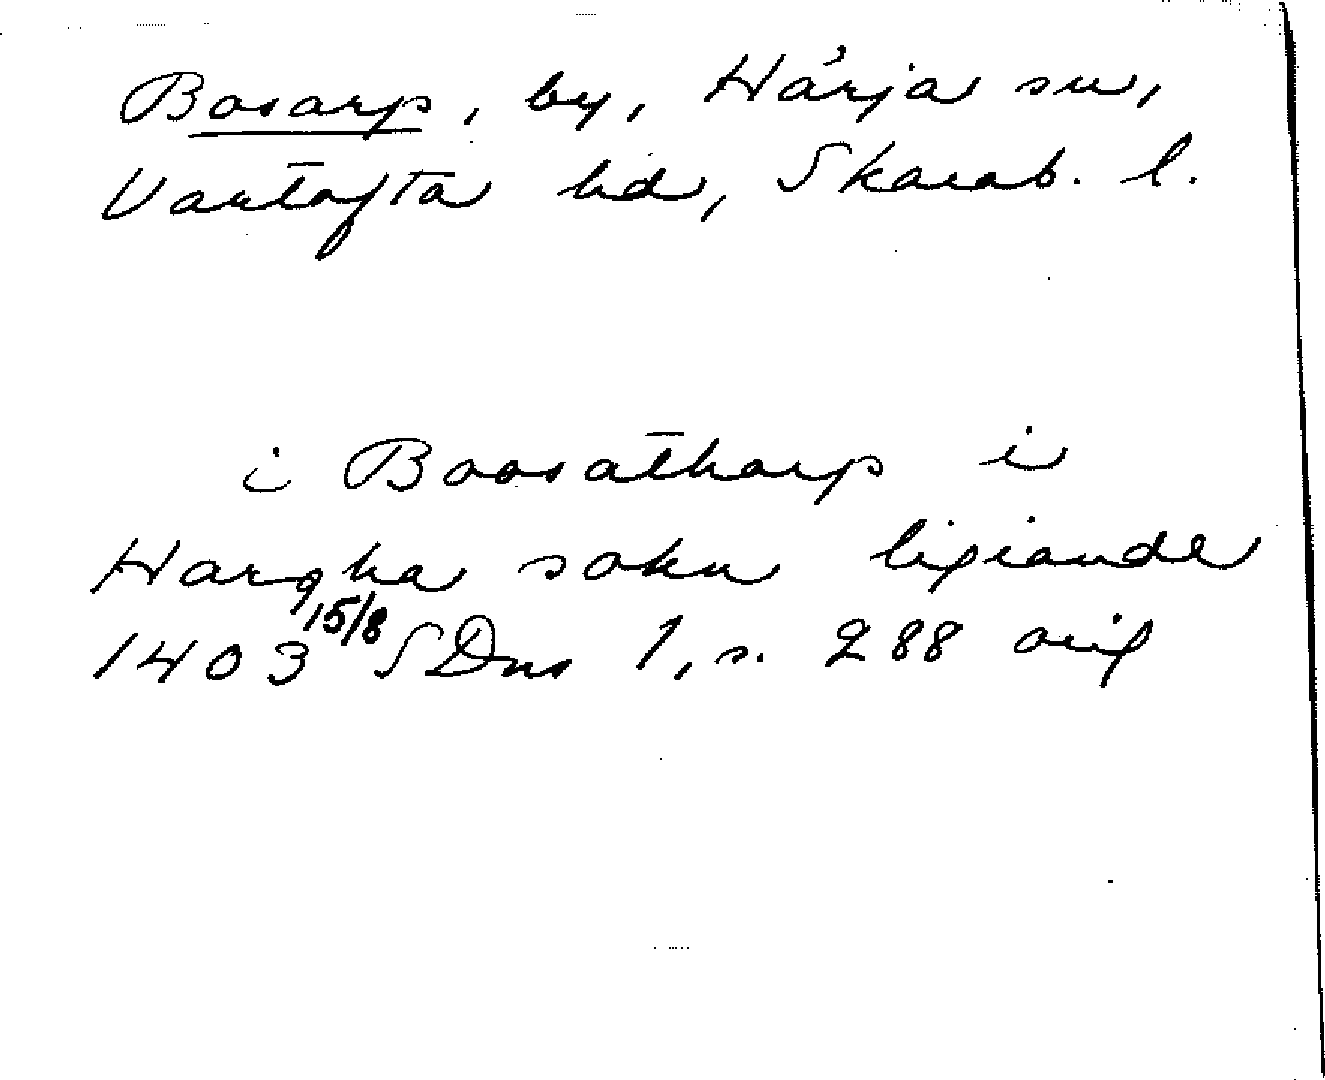 Bosarp, by, Härja sn,
Vartofta hd, Skarab. l.
i Boosatharp i
Hargha sokn ligiande
1403 15/8 SDns 1, s. 288 orig